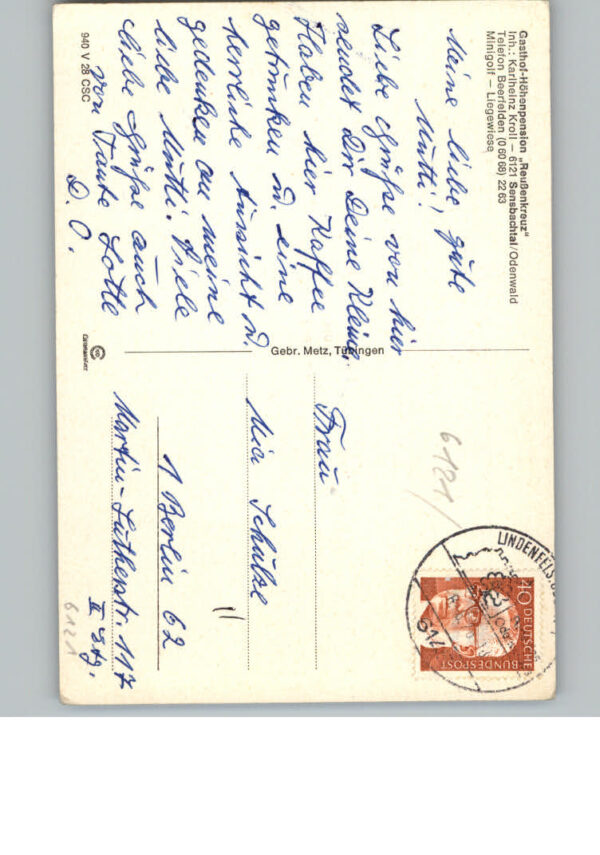 Gasthof-Höhenpension „Reußenkreuz“
Inh.: Karlheinz Kroll – 6121 Sensbachtal/Odenwald
Telefon Beerfelden (0 60 68) 22 63
Minigolf – Liegewiese
Meine liebe, gute
Mutti!
Liebe Grüße von hier
sendet Dir Deine Kleine.
Haben hier Kaffee
getrunken u. eine
herrliche Aussicht u.
gedenken an meine
liebe Mutti. Viele
liebe Grüße auch
von Tante Lotte
D. O.
940 V 28 CSC
Gebr. Metz, Tübingen
6121/
LINDENFELS
614
40 DEUTSCHE
BUNDESPOST
Frau
Mia Schulze
1 Berlin 62
Martin-Lutherstr. 117
II Etg.
6121